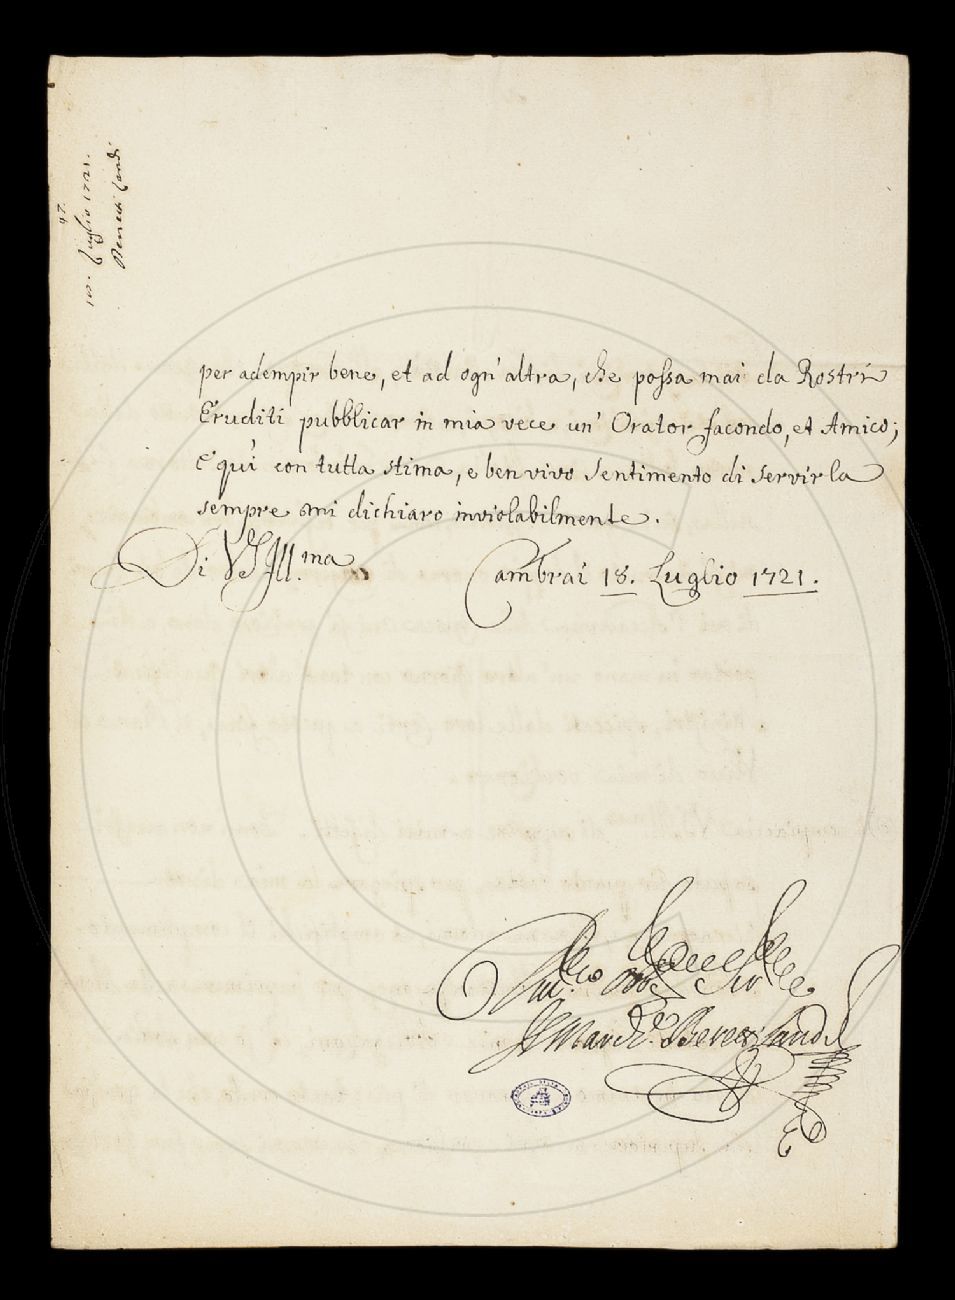 97.
18. Luglio 1721.
Beretti Landi
per adempir bene, et ad ogn' altra, che possa mai da Rostri
Eruditi pubblicar in mia vece un' Orator facondo, et Amico;
e quì con tutta stima, e ben vivo sentimento di servirla
sempre mi dichiaro inviolabilmente.
Di VS Ill.ma
Cambrai 18. Luglio 1721.
Il March.e Beretti Landi